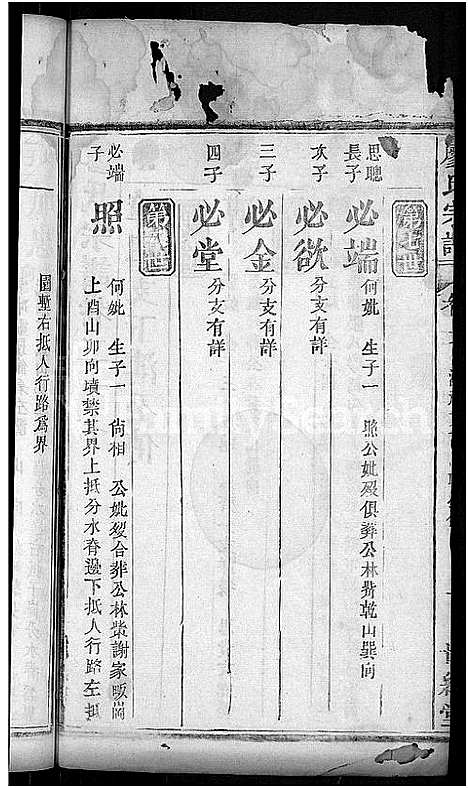 廖氏宗譜
第七世
思聰長子
必端
何妣 生子一 照公妣歿俱葬公林 乾山巽向
次子
必欲
分支有詳
三子
必金
分支有詳
四子
必堂
分支有詳
第八世
必端子
照
何妣 生子一 尙相 公妣歿合葬公林 謝家坂崗
上酉山卯向墳禁其界上抵分水脊邊下抵人行路左抵
園塹右抵人行路爲界